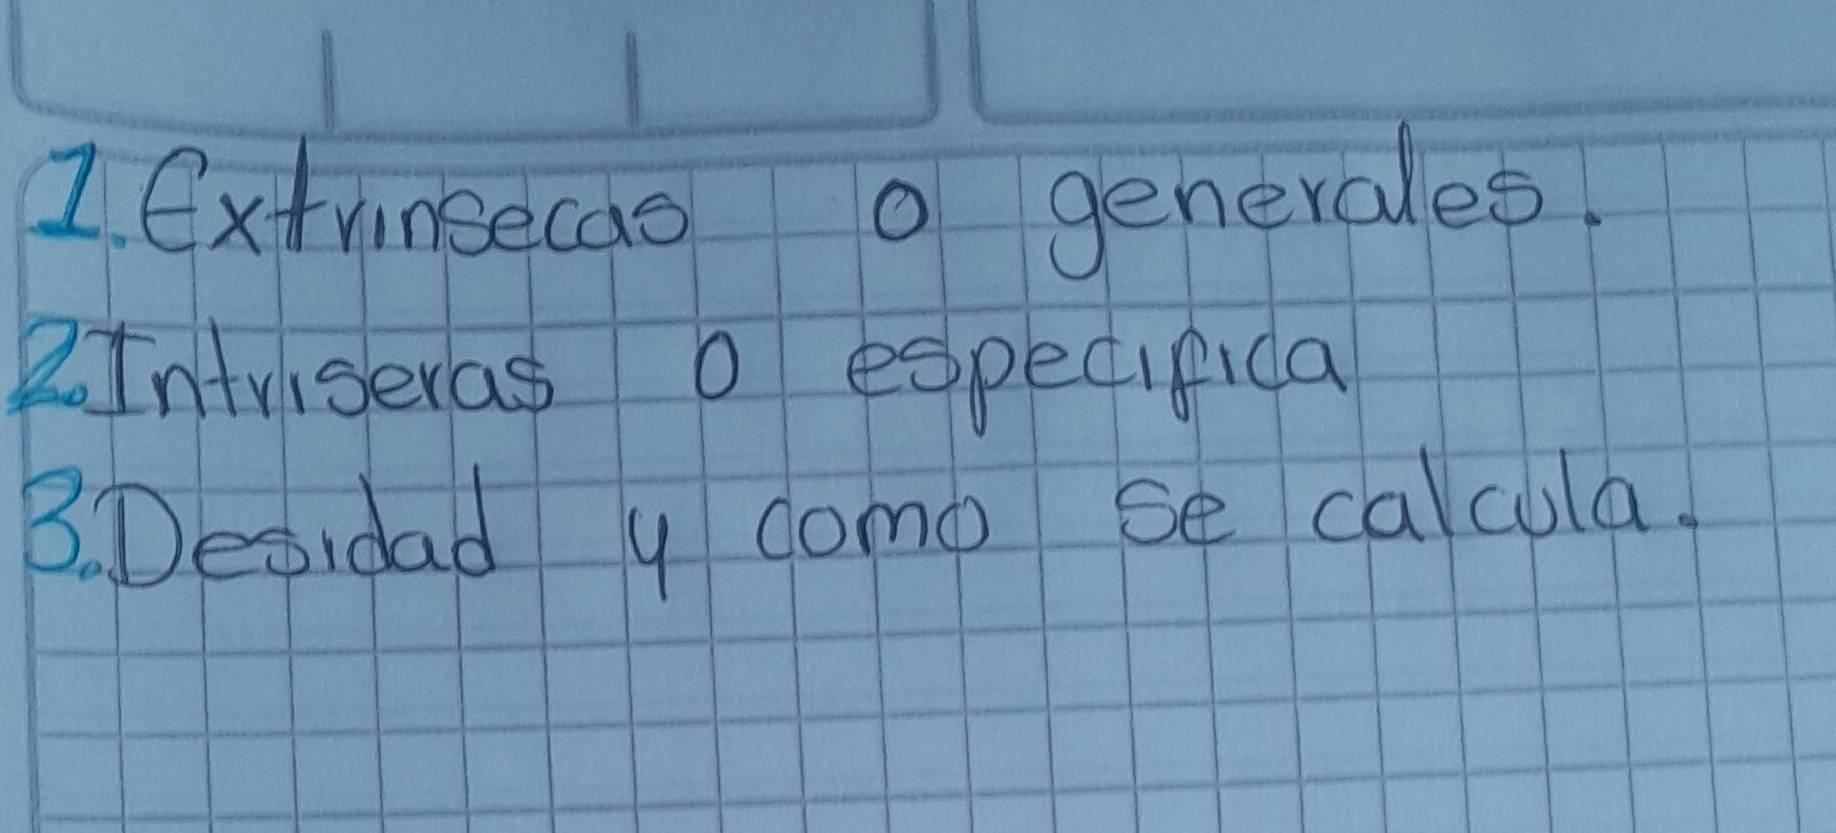 1. Extrinsecas o generales.
2. Intriseras o especifica
3. Desidad y como se calcula.